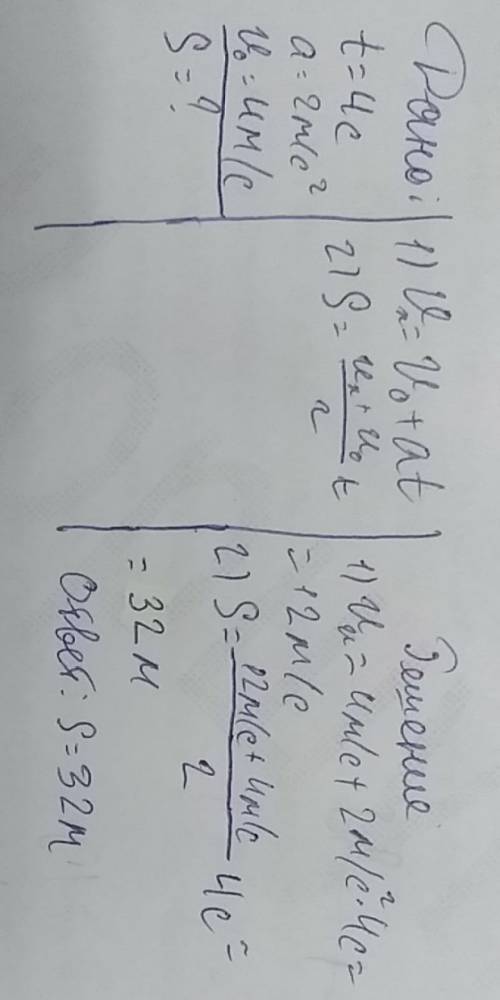 Дано:
t = 4с
a = 2м/с²
υ₀ = 4м/с
S = ?
1) υₓ = υ₀ + at
2) S = (υₓ + υ₀)/2 t
Решение
1) υₓ = 4м/с + 2м/с² · 4с =
= 12м/с
2) S = (12м/с + 4м/с)/2 4с =
= 32м
Ответ: S = 32м